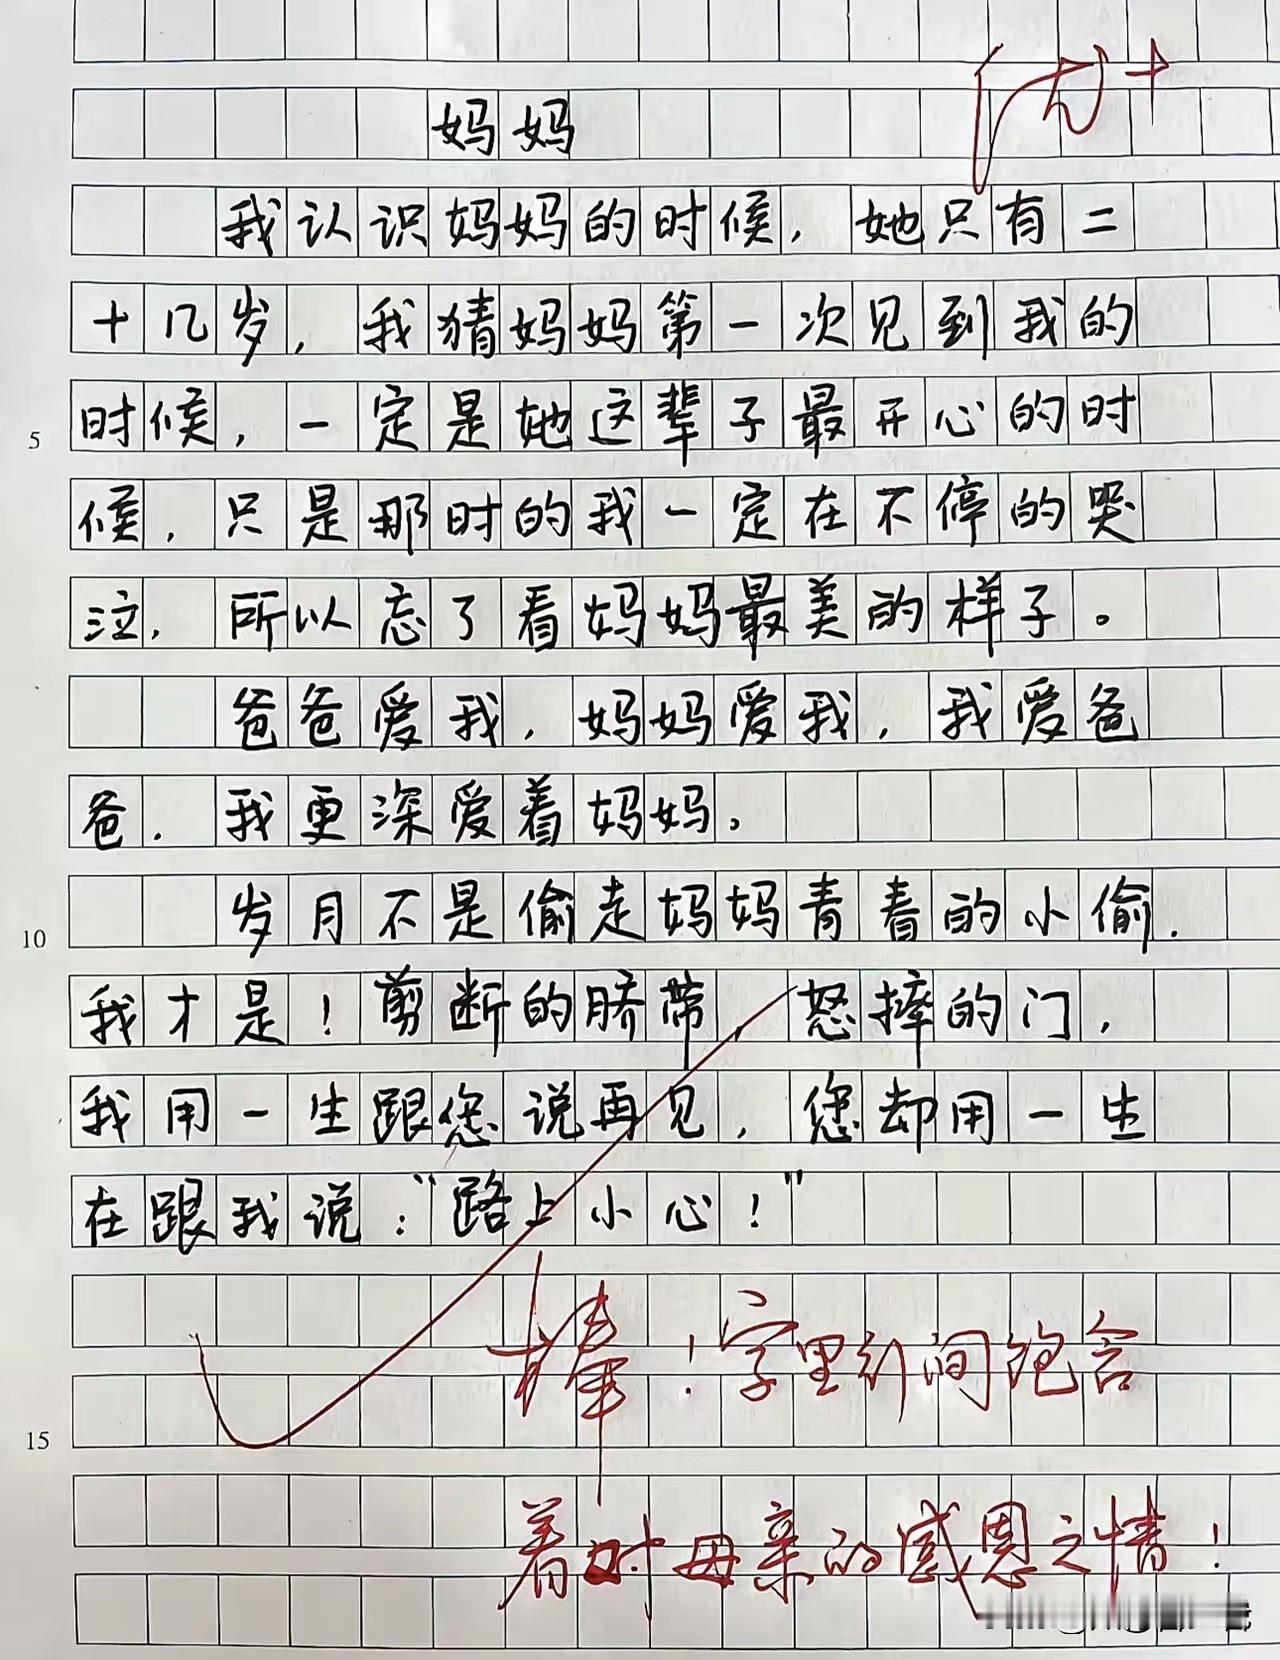 优+
妈妈
我认识妈妈的时候，她只有二
十几岁，我猜妈妈第一次见到我的
5 时候，一定是她这辈子最开心的时
候，只是那时的我一定在不停的哭
泣，所以忘了看妈妈最美的样子。
爸爸爱我，妈妈爱我，我爱爸
爸，我更深爱着妈妈。
10 岁月不是偷走妈妈青春的小偷，
我才是！剪断的脐带 怒摔的门，
我用一生跟您说再见，您却用一生
在跟我说：“路上小心！”
棒！字里行间饱含
15
着对母亲的感恩之情！